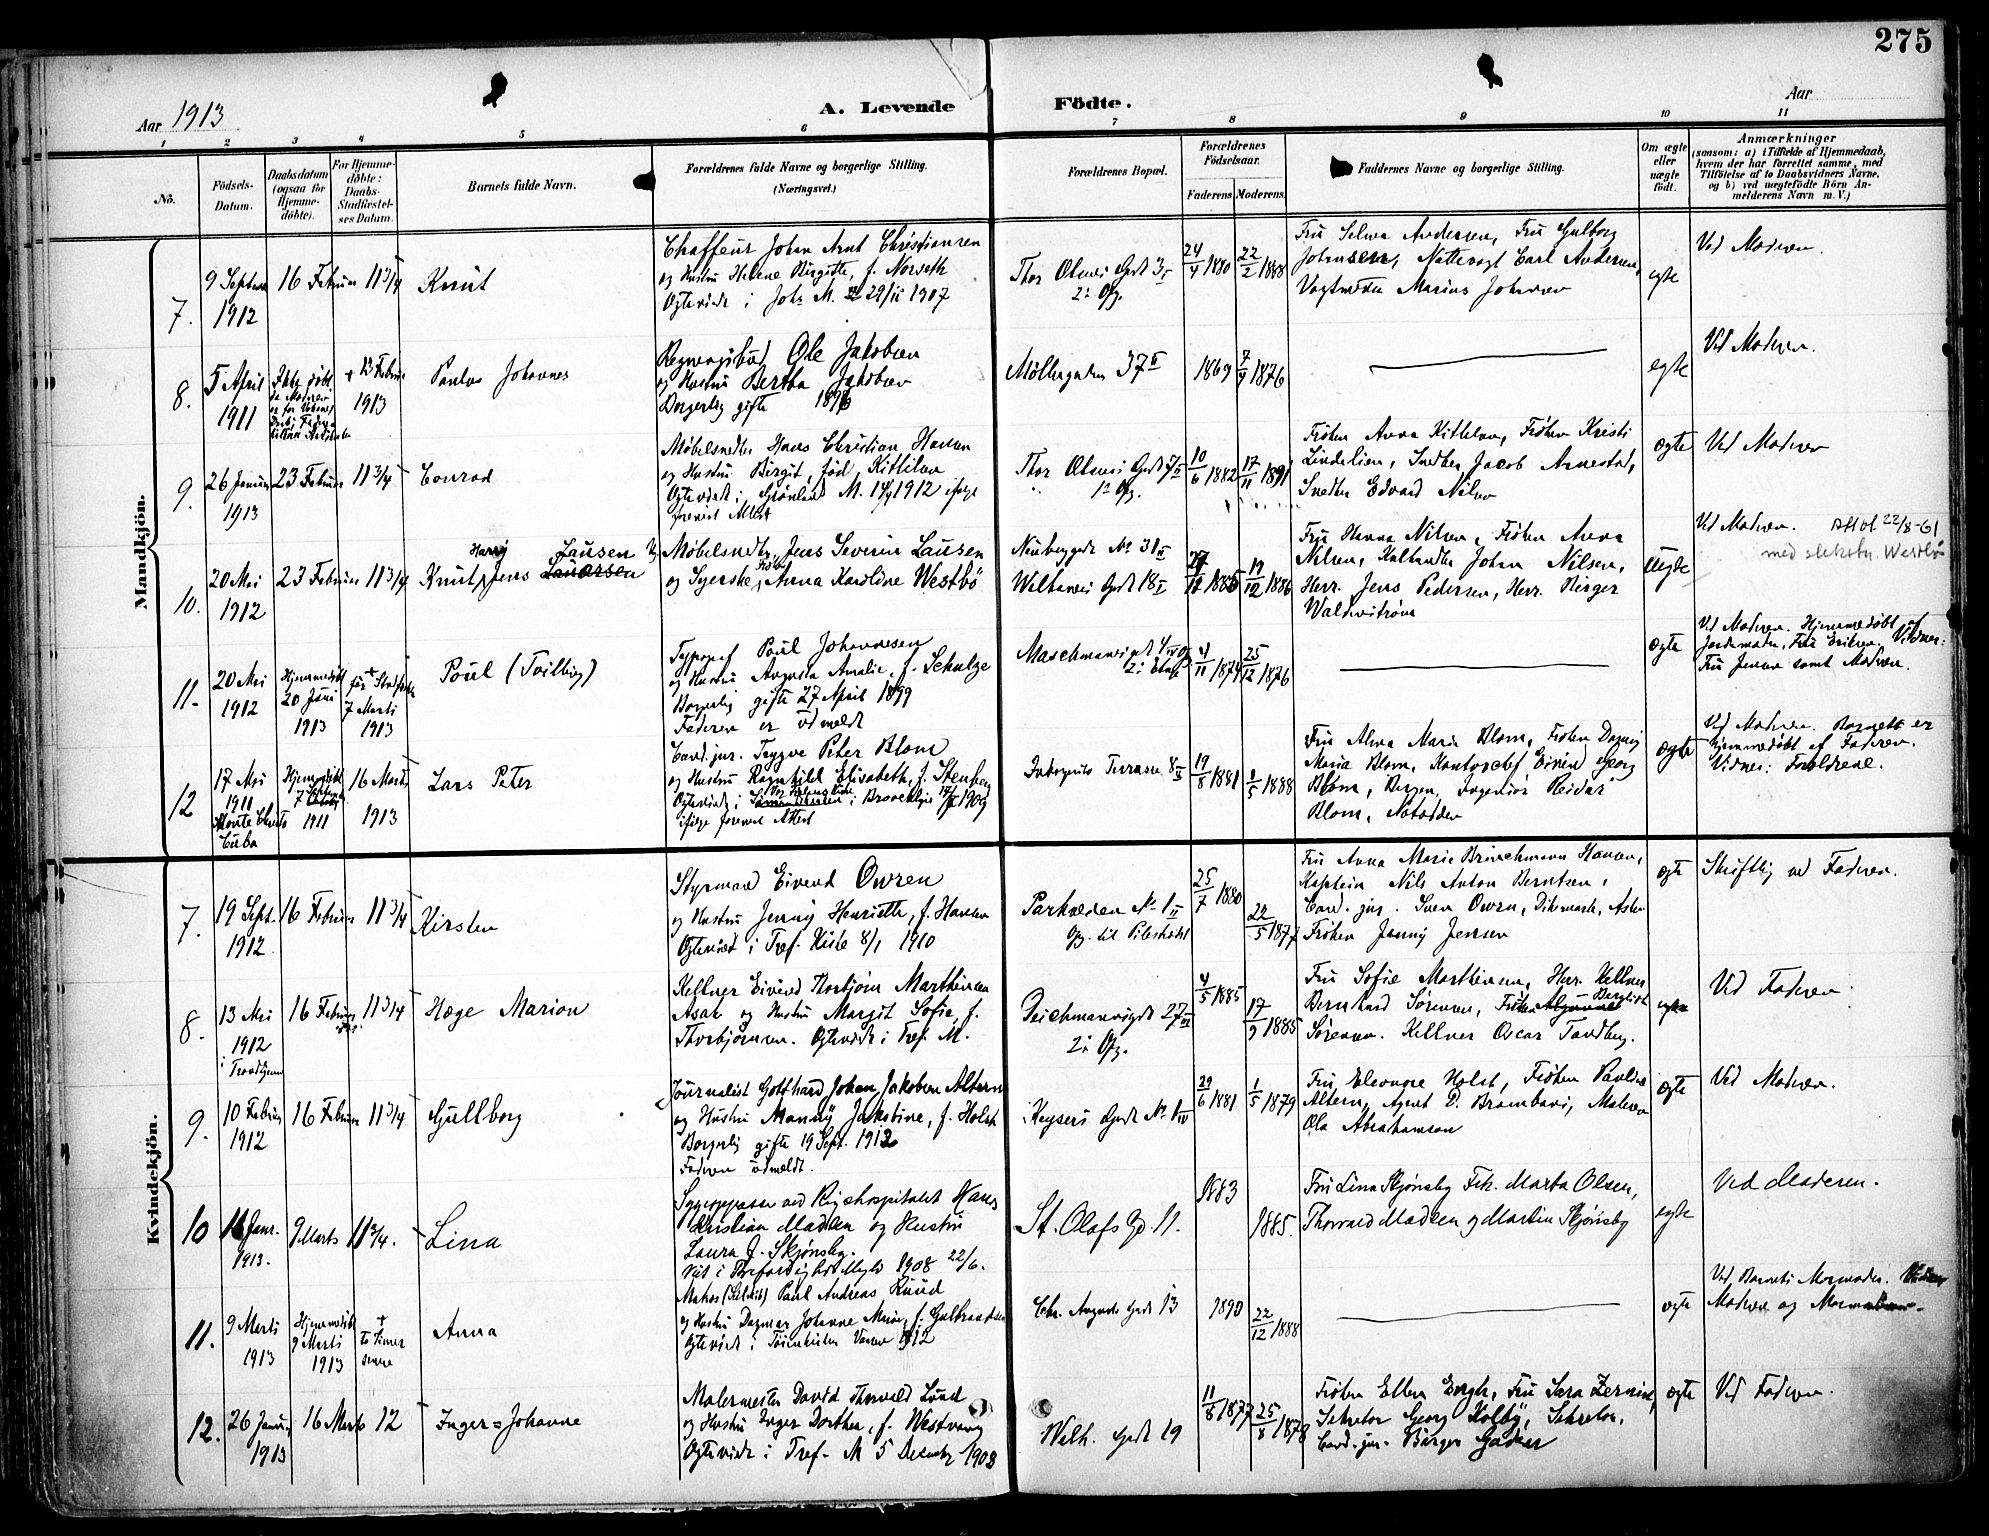 275
Aar 1913
A. Levende Födte.
Aar
1 2 3 4 5 6 7 8 9 10 11
No.
Födsels-Datum.
Daabsdatum (ogsaa for Hjemmedöbte).
For Hjemmedöbte: Daabs-Stadfæstelses Datum.
Barnets fulde Navn.
Forældrenes fulde Navne og borgerlige Stilling.
(Næringsvei.)
Forældrenes Bopæl.
Forældrenes Födselsaar.
Faderens Moderens.
Faddernes Navne og borgerlige Stilling.
Om ægte eller uægte födt.
Anmærkninger
(saasom: a) i Tilfælde af Hjemmedaab, hvem der har forrettet samme, med Tilföielse af to Daabsvidners Navne, og b) ved uægtefödte Börn Anmelderens Navn m. V.)
Mandkjön.
7. 9 Septem 1912
16 Februar 11 3/4
Knut
Chaffeur Johan Arnt Christiansen
og Hustru Helene Birgitte, f. Norseth
Egteviede i Joh. M. 29/11 1907
Thor Olsens Gade 3
2. Opg.
24/4 1880 22/2 1888
Fru Selma Andersen, Fru Gulborg
Johansen, Nattevagt Carl Andersen,
Vagtmand Marius Johansen
egte
Ved Moderen.
8. 5 April 1911
+ 13 Februar 1913
Paulus Johannes
Ole Jakobsen
og Hustru Bertha Jakobsen
Borgerlig gifte 1896
Møllergaden 37 II
1869 7/9 1876
egte
Ved Moderen.
9. 26 Januar 1913
23 Februar 11 3/4
Conrad
Møbelsnedker Hans Christian Hansen
og Hustru Birgit, fød Kittilsen
Egteviede i Grønland M. 1912 ifølge
forevist Attest
Thor Olsens Gade 7 II
1. Opg.
10/6 1882 17/11 1891
Frøken Anna Kittilsen, Frøken Kristi
Lindelien, Snedker Jacob Arnestad,
Snedker Edvard Nilsen
egte
Ved Moderen
10. 20 Mai 1912
23 Februar 11 3/4
Knut Harry Jens Lausen
Møbelsnedker Jens Severin Lausen
og Syerske, Frøken Anna Karoline Westbö
Nebygade No 31 II
Welhavens Gade 18 I
1885 19/12 1886
Fru Hanna Nilsen, Frøken Anna
Nilsen, Johan Nilsen,
Herr. Jens Pedersen, Herr. Birger
Waldenström
uegte
Ved Moderen. 22/8-61
med slektsn. Westbö
11. 20 Mai 1912
Hjemmedöbt 20 Juni 1913
+ før Stadfæst 7 Marts 1913
Poul (Tvilling)
Typograf Poul Johannesen
og Hustru Augusta Amalie, f. Schulze
Borgerlig gifte 27 April 1899
Faderen er udmeldt
4/11 1874 25/12 1876
egte
Ved Moderen. Hjemmedøbt af
Jordemoder, Fru Eriksen. Vidner:
Fru Jensen samt Moderen.
12 17 Mai 1911
Monte Christo
Cuba
Hjemmedöbt 7 1911
16 Marts 1913
Lars Peter
Cand. jur. Trygve Peter Blom
og Hustru Ragnhild Elisabeth, f. Stenberg
Egteviede i Brooklyn 1909
ifølge forevist Attest
Terrasse 8 II
19/8 1881 1/5 1888
Fru Alma Marie Blom, Frøken Dagny
Maria Blom, Kontorchef Eivind Georg
Blom, Bergen, Ingeniør Reidar
Blom, Notodden
egte
Ved Moderen. Barnet er
hjemmedøbt af Faderen.
Vidner: Forældrene.
Kvindekjön.
7. 19 Sept. 1912
16 Februar 11 3/4
Kirsten
Styrmand Eivind Owren
og Hustru Jenny Henriette, f. Hansen
Egteviet i Tref. Kirke 8/1 1910
Parkveien No 1 II
Opg. til Pilestrædet
25/7 1880 22/5 1877
Fru Anna Marie Brinchmann Hansen,
Kaptein Nils Anton Berntsen,
Cand. jur. Sven Owren, Dikemark, Asker
Frøken Jenny Jensen
egte
Skriftlig ved Faderen.
8. 13 Mai 1912
i Trondhjem
16 Februar 11 3/4
Hæge Marion
Kellner Eivind Thorbjørn Marthinsen
Asak og Hustru Margit Sofie, f.
Thorbjørnsen. Egteviede i Tref. M.
Deichmannsgade 27 III
2. Opg.
4/5 1885 17/9 1885
Fru Sofie Marthinsen, Herr. Kellner
Bernhard Sörensen, Frøken Bergliot
Sörensen. Kellner Oscar Tandberg.
egte
Ved Faderen
9. 10 Februar 1912
16 Februar 11 3/4
Gullborg
Journalist Gotthard Johan Jakobsen Altern
og Hustru Manny Jakobine, f. Holst
Borgerlig gifte 19 Sept. 1912
Faderen udmeldt.
Keysers Gade No 1 IV
29/6 1881 1/5 1879
Fru Eleonore Holst, Frøken Pauline
Altern, Agent D. Brambani, Maleren
Ola Abrahamson
egte
Ved Moderen.
10 16 Janr. 1913.
9 Marts 11 3/4.
Lina
Sygepasser ved Rigshospitalet Hans
Kristian Madsen og Hustru
Laura f. Skjønsby.
Viet i Trefoldighets Mgh 1908 22/6.
St. Olafs Gd 11.
1883 1885.
Fru Lina Skjønsby Frk. Marta Olsen,
Thorvald Madsen og Martin Skjønsby
egte
Ved Moderen.
11. 9 Marts 1913
Hjemmedöbt 9 Marts 1913
+ to Timer senere
Anna
Paul Andreas Ruud
og Hustru Dagmar Johanne Marie, f. Gulbrandsen
Egteviede i 1912
Chr. Augusts Gade 13
1890 22/12 1888
egte
Ved Barnets Mormoder.
Moderen og Mormoderen.
12. 26 Januar 1913
16 Marts 12
Inger=Johanne
Malermester David Thorvald Lund
og Hustru Inger Dorthea, f. Westvang
Egteviede i Tref. M 5 December 1903
Welh. Gade 19
11/8 1877 25/8 1878
Frøken Ellen Bergh, Fru Sara Zernin,
Sekretær Georg Kolby, Sekretær,
Cand. jur. Birger Gader
egte
Ved Faderen.